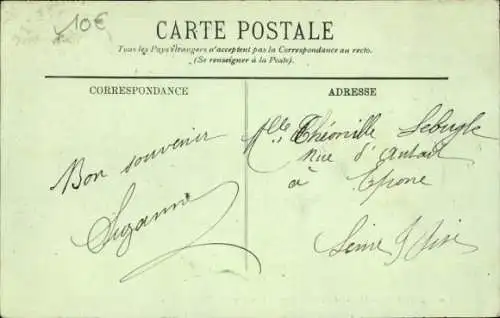 10€
CARTE POSTALE
Tous les Pays étrangers n'acceptent pas la Correspondance au recto.
(Se renseigner à la Poste).
CORRESPONDANCE
ADRESSE
Bon souvenir
Suzanne
Mlle Théonille
Rue d'
à Epone
Seine & Oise